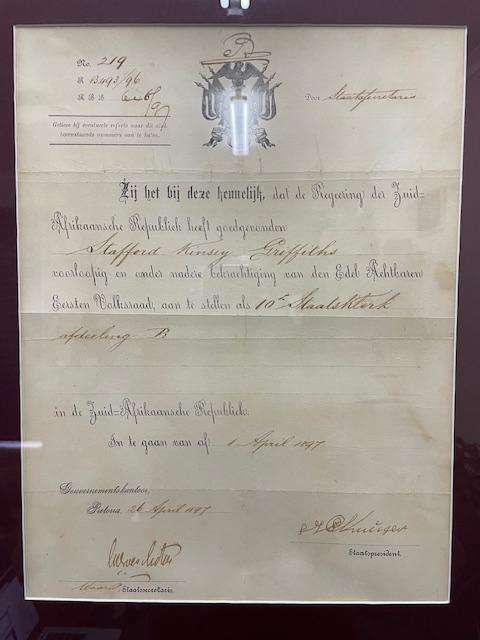 No. 219
R 13493/96
R B B
/97
Gelieve bij eventueele referte naar dit stuk
bovenstaande nummers aan te halen.
Door Staatssecretaris
Zij het bij deze kennelijk, dat de Regeering der Zuid=
Afrikaansche Republiek heeft goedgevonden
Stafford Kinsey Griffiths
voorloopig en onder nadere bekrachtiging van den Edel Achtbaren
Eersten Volksraad, aan te stellen als 10e Staatsklerk
afdeeling B
in de Zuid=Afrikaansche Republiek.
In te gaan van af 1 April 1897
Gouvernementskantoor,
Pretoria, 26 April 1897
Staatspresident.
Staatssecretaris.